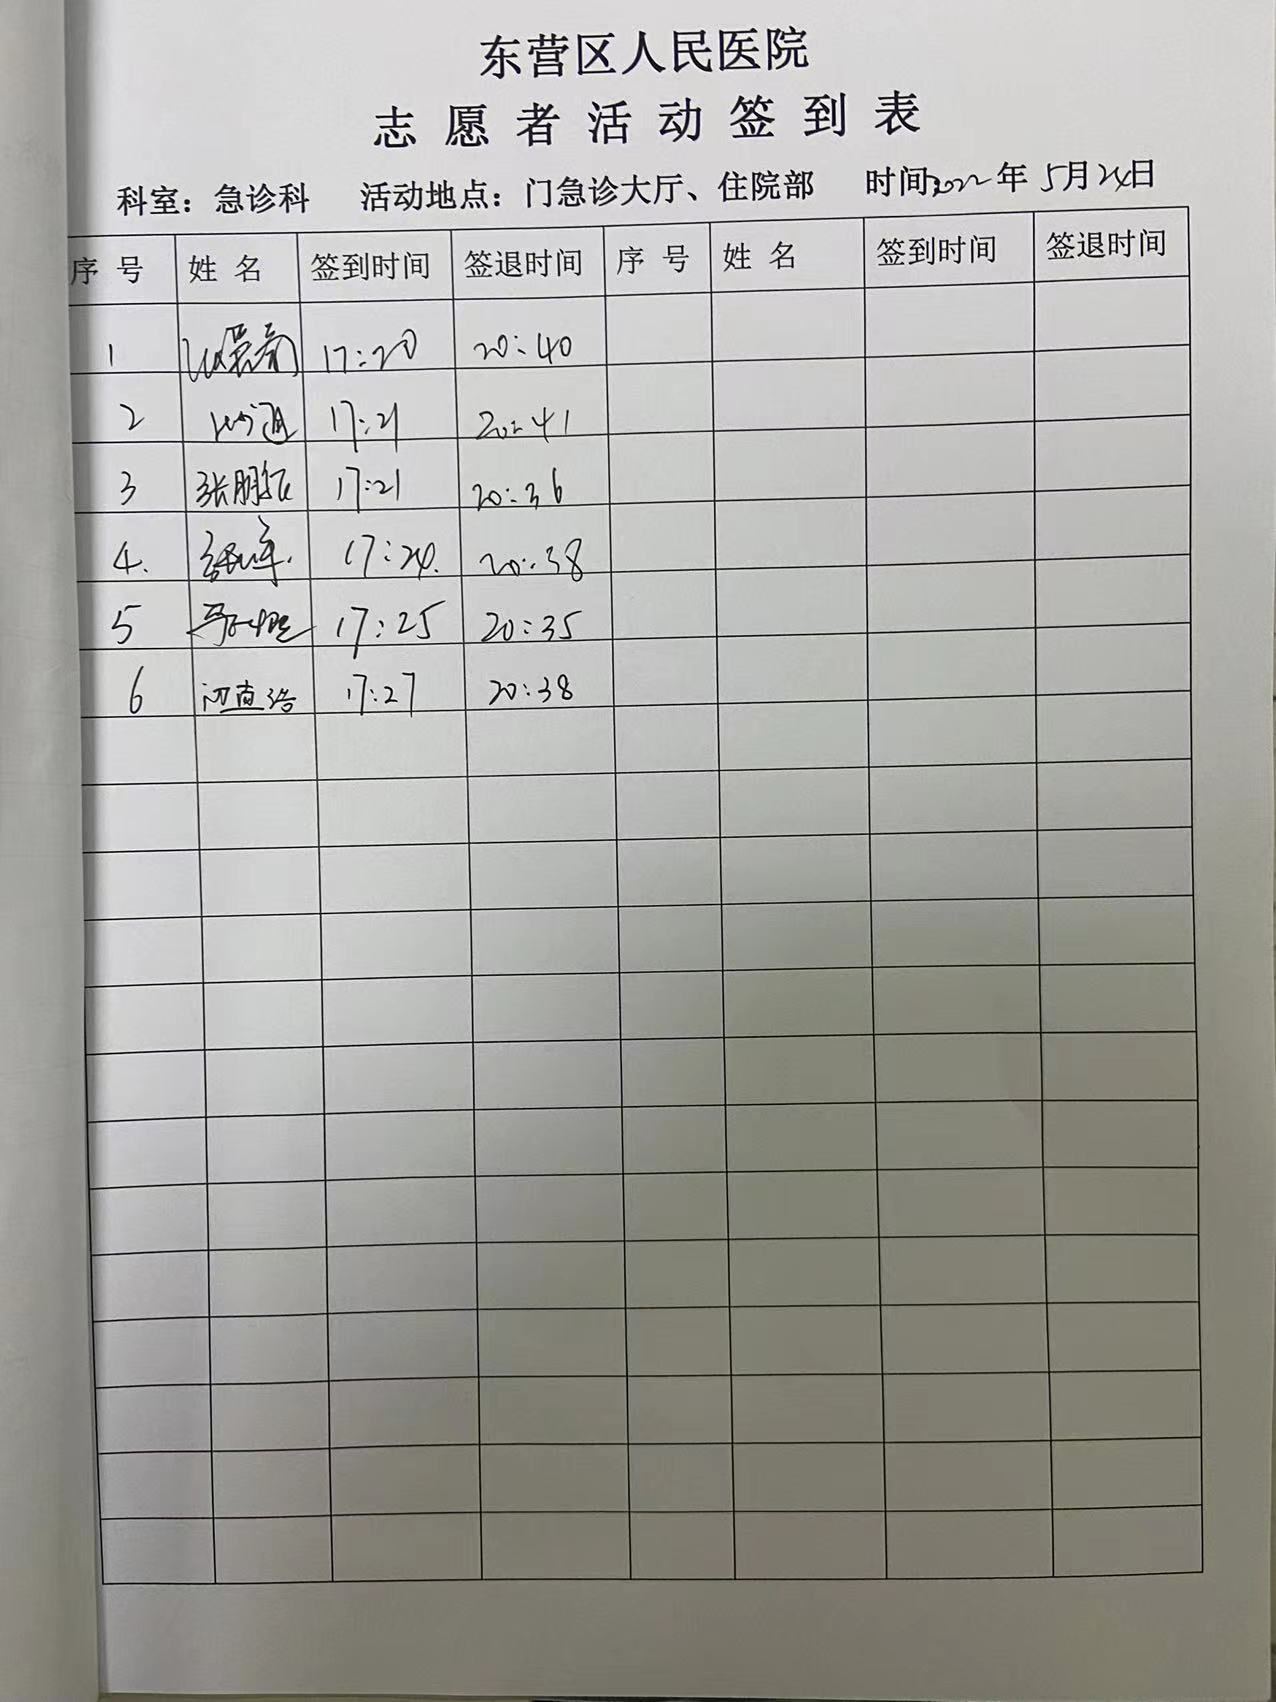 东营区人民医院
志愿者活动签到表
科室：急诊科 活动地点：门急诊大厅、住院部 时间2022年5月24日
序号 姓名 签到时间 签退时间 序号 姓名 签到时间 签退时间
1 17:20 20:40
2 17:21 20:41
3 张朋 17:21 20:36
4. 17:24. 20:38
5 17:25 20:35
6 17:27 20:38